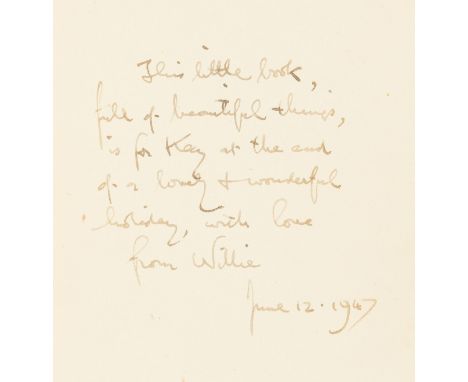 This little book,
full of beautiful things,
is for Kay at the end
of a lovely & wonderful
holiday, with love
from Willie
June 12. 1947